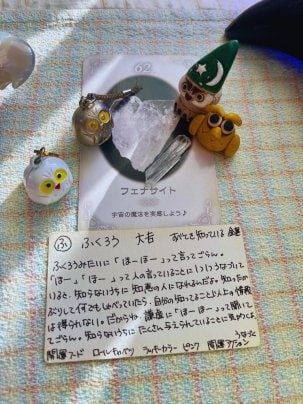 62
フェナサイト
宇宙の魔法を実感しよう♪
ふ ふくろう 大吉 知っている
ふくろうみたいに「ほーほー」って言ってごらん。
「ほー」「ほー」って人の言っていることにいつもうなづいて
いると、知らないうちに知恵の人になれるんだよ。知ったか
ぶりして何でもしゃべっていたら、自分の知ってること以上の情報
は得られない。だからね、謙虚に「ほーほー」って聞いて
てごらん。知らないうちにたくさん与えられていることに気がつくよ。
開運フード ロールキャベツ ラッキーカラー ピンク 開運アクション うなづく